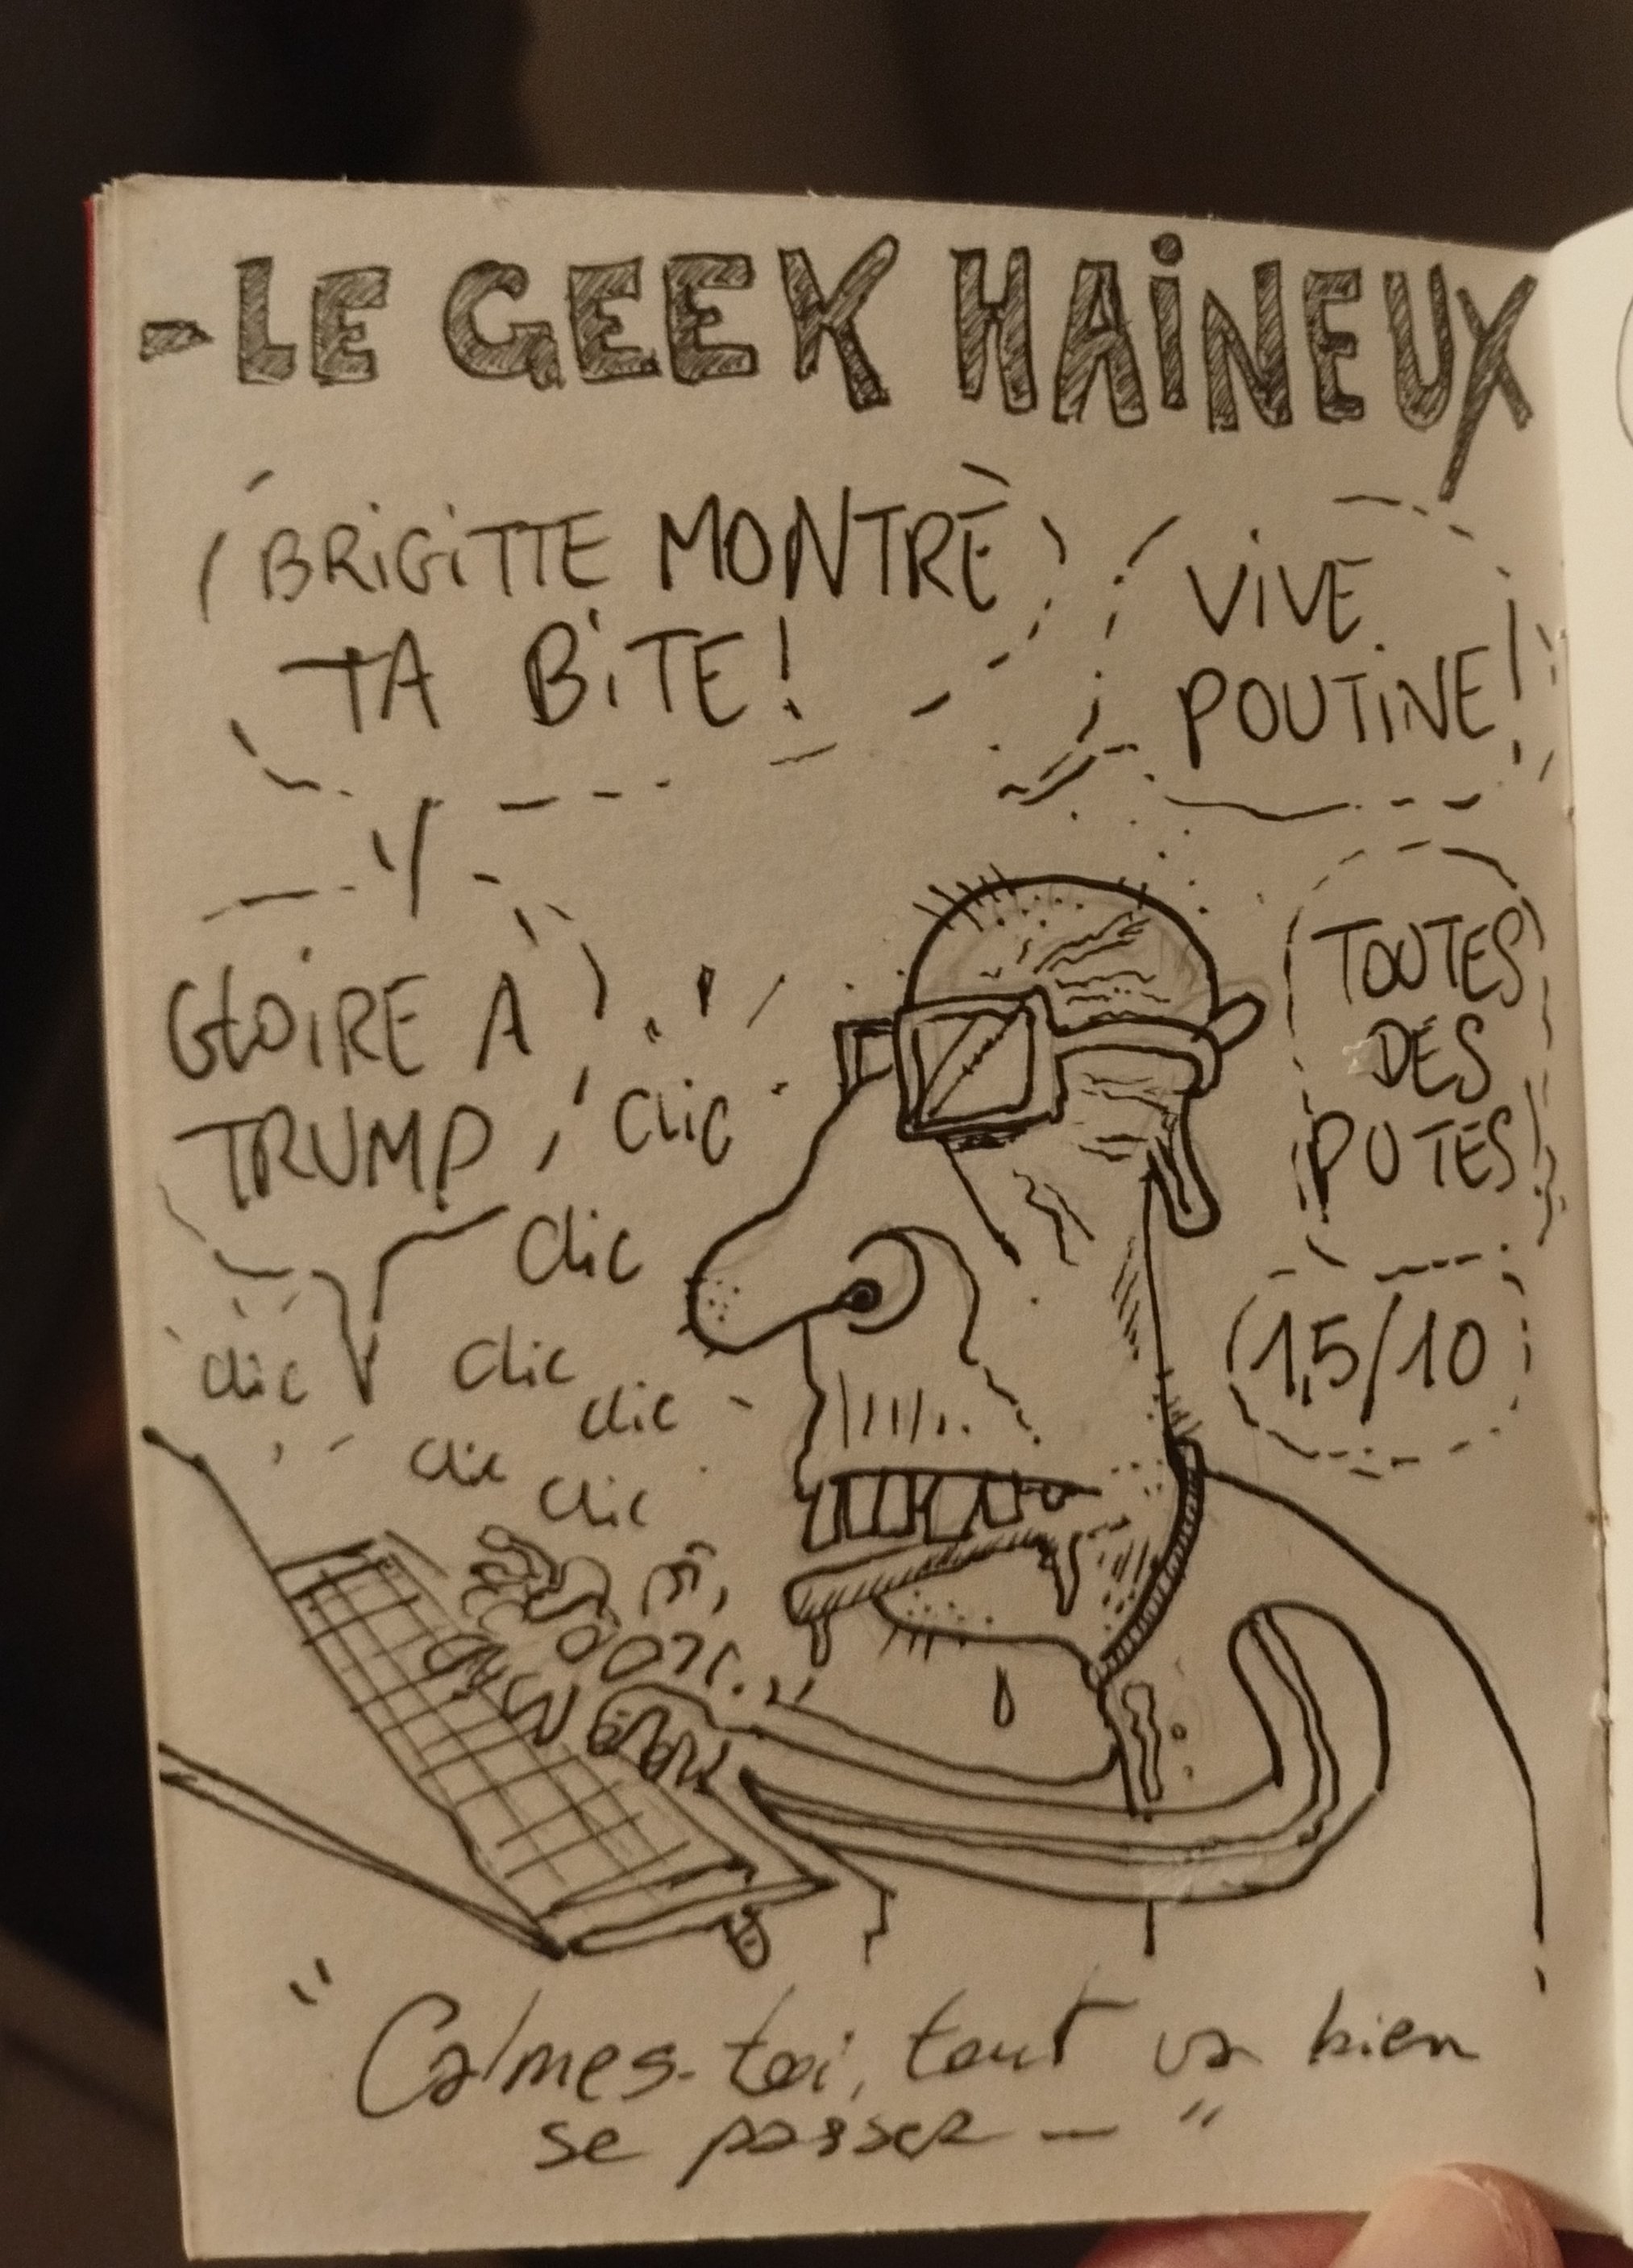 -LE GEEK HAiNEUX
BRiGiTTE MONTRE
TA BiTE!
ViVE
POUTiNE!
GLOiRE A
TRUMP
TOUTES
DES
PUTES
1,5/10
clic
clic
clic
clic
clic
clic
clic
"Calmes-toi, tout va bien
se passer — "